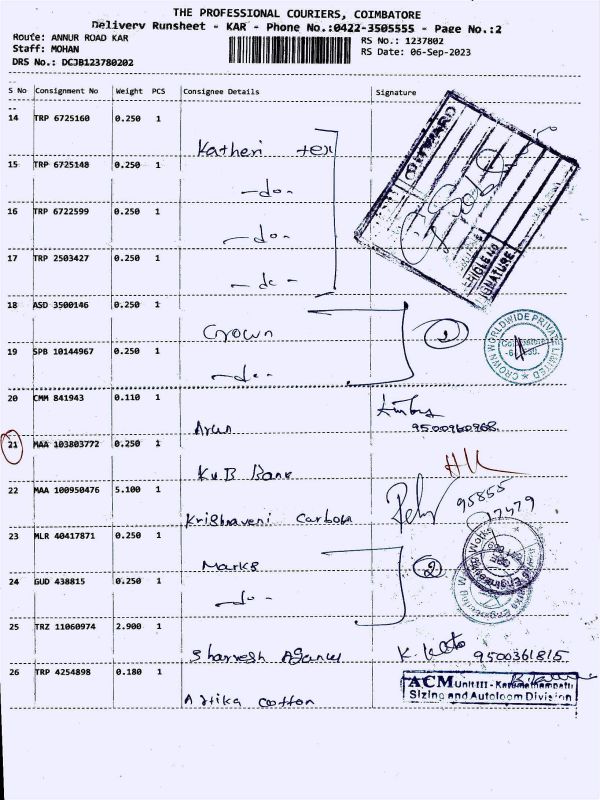 THE PROFESSIONAL COURIERS, COIMBATORE
Delivery Runsheet - KAR - Phone No.:0422-3505555 - Page No.:2
Route: ANNUR ROAD KAR
RS No.: 1237802
Staff: MOHAN
RS Date: 06-Sep-2023
DRS No.: DCJB123780202
S No Consignment No Weight PCS Consignee Details Signature
14 TRP 6725160 0.250 1
Katheri tex
OUTWARD
15 TRP 6725148 0.250 1
-do-
16 TRP 6722599 0.250 1
-do-
VEHICLE NO
SIGNATURE
17 TRP 2503427 0.250 1
-do-
18 ASD 3500146 0.250 1
Crown
2
CROWN WORLDWIDE PRIVATE LIMITED
19 SPB 10144967 0.250 1
-do-
20 CMM 841943 0.110 1
Arun
9500960968
21 MAA 103803772 0.250 1
KVB Bank
22 MAA 100950476 5.100 1
Krishnaveni Carbon
95855
23 MLR 40417871 0.250 1
Marks
2
24 GUD 438815 0.250 1
-do-
25 TRZ 11060974 2.900 1
Sharvesh Agency
9500361815
26 TRP 4254898 0.180 1
Artika cotton
ACM Unit III - Karamathampatti
Sizing and Autoloom Division